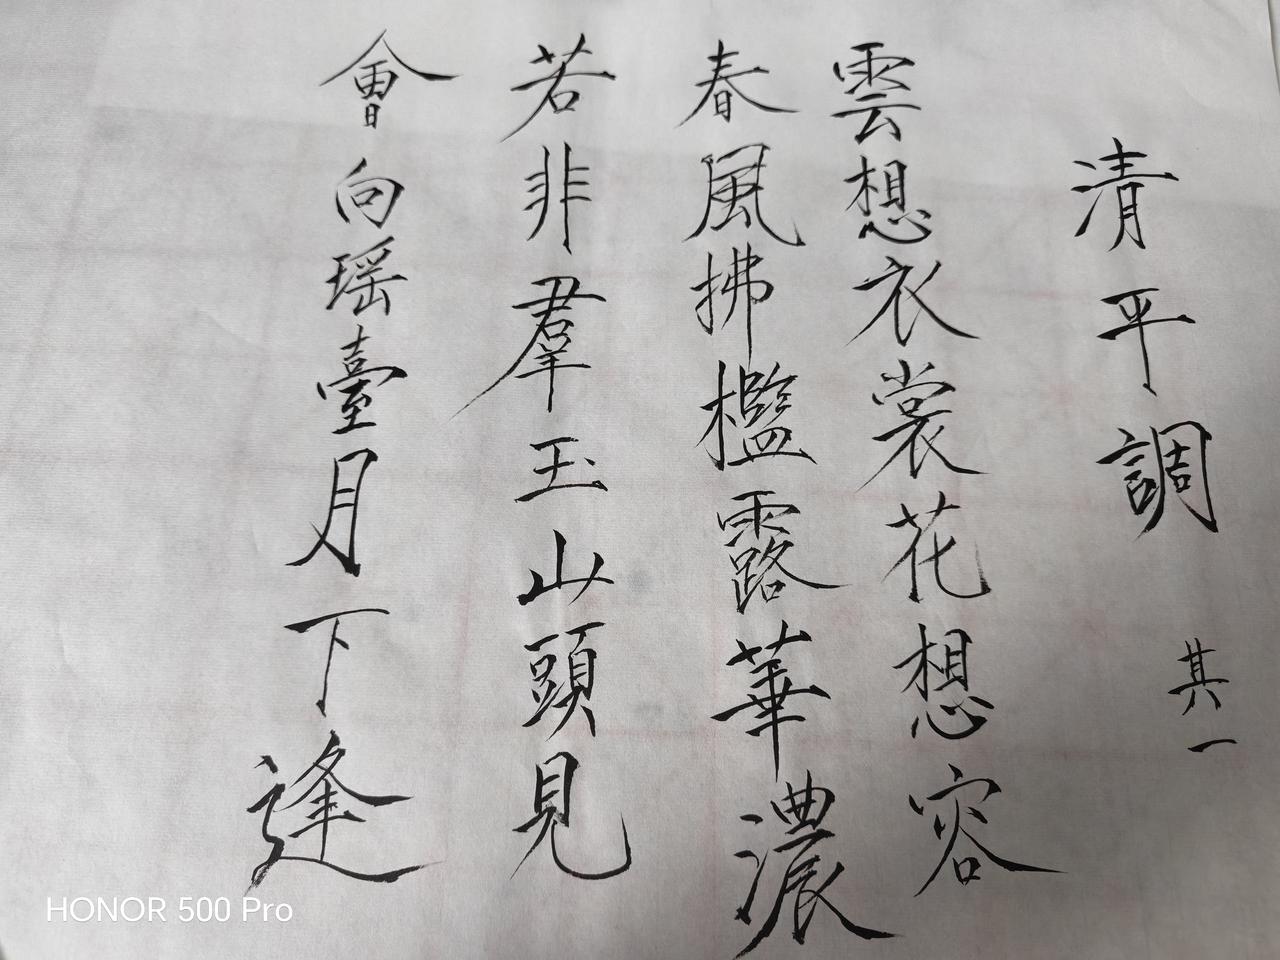 清平調 其一
雲想衣裳花想容
春風拂檻露華濃
若非羣玉山頭見
會向瑶臺月下逢
HONOR 500 Pro